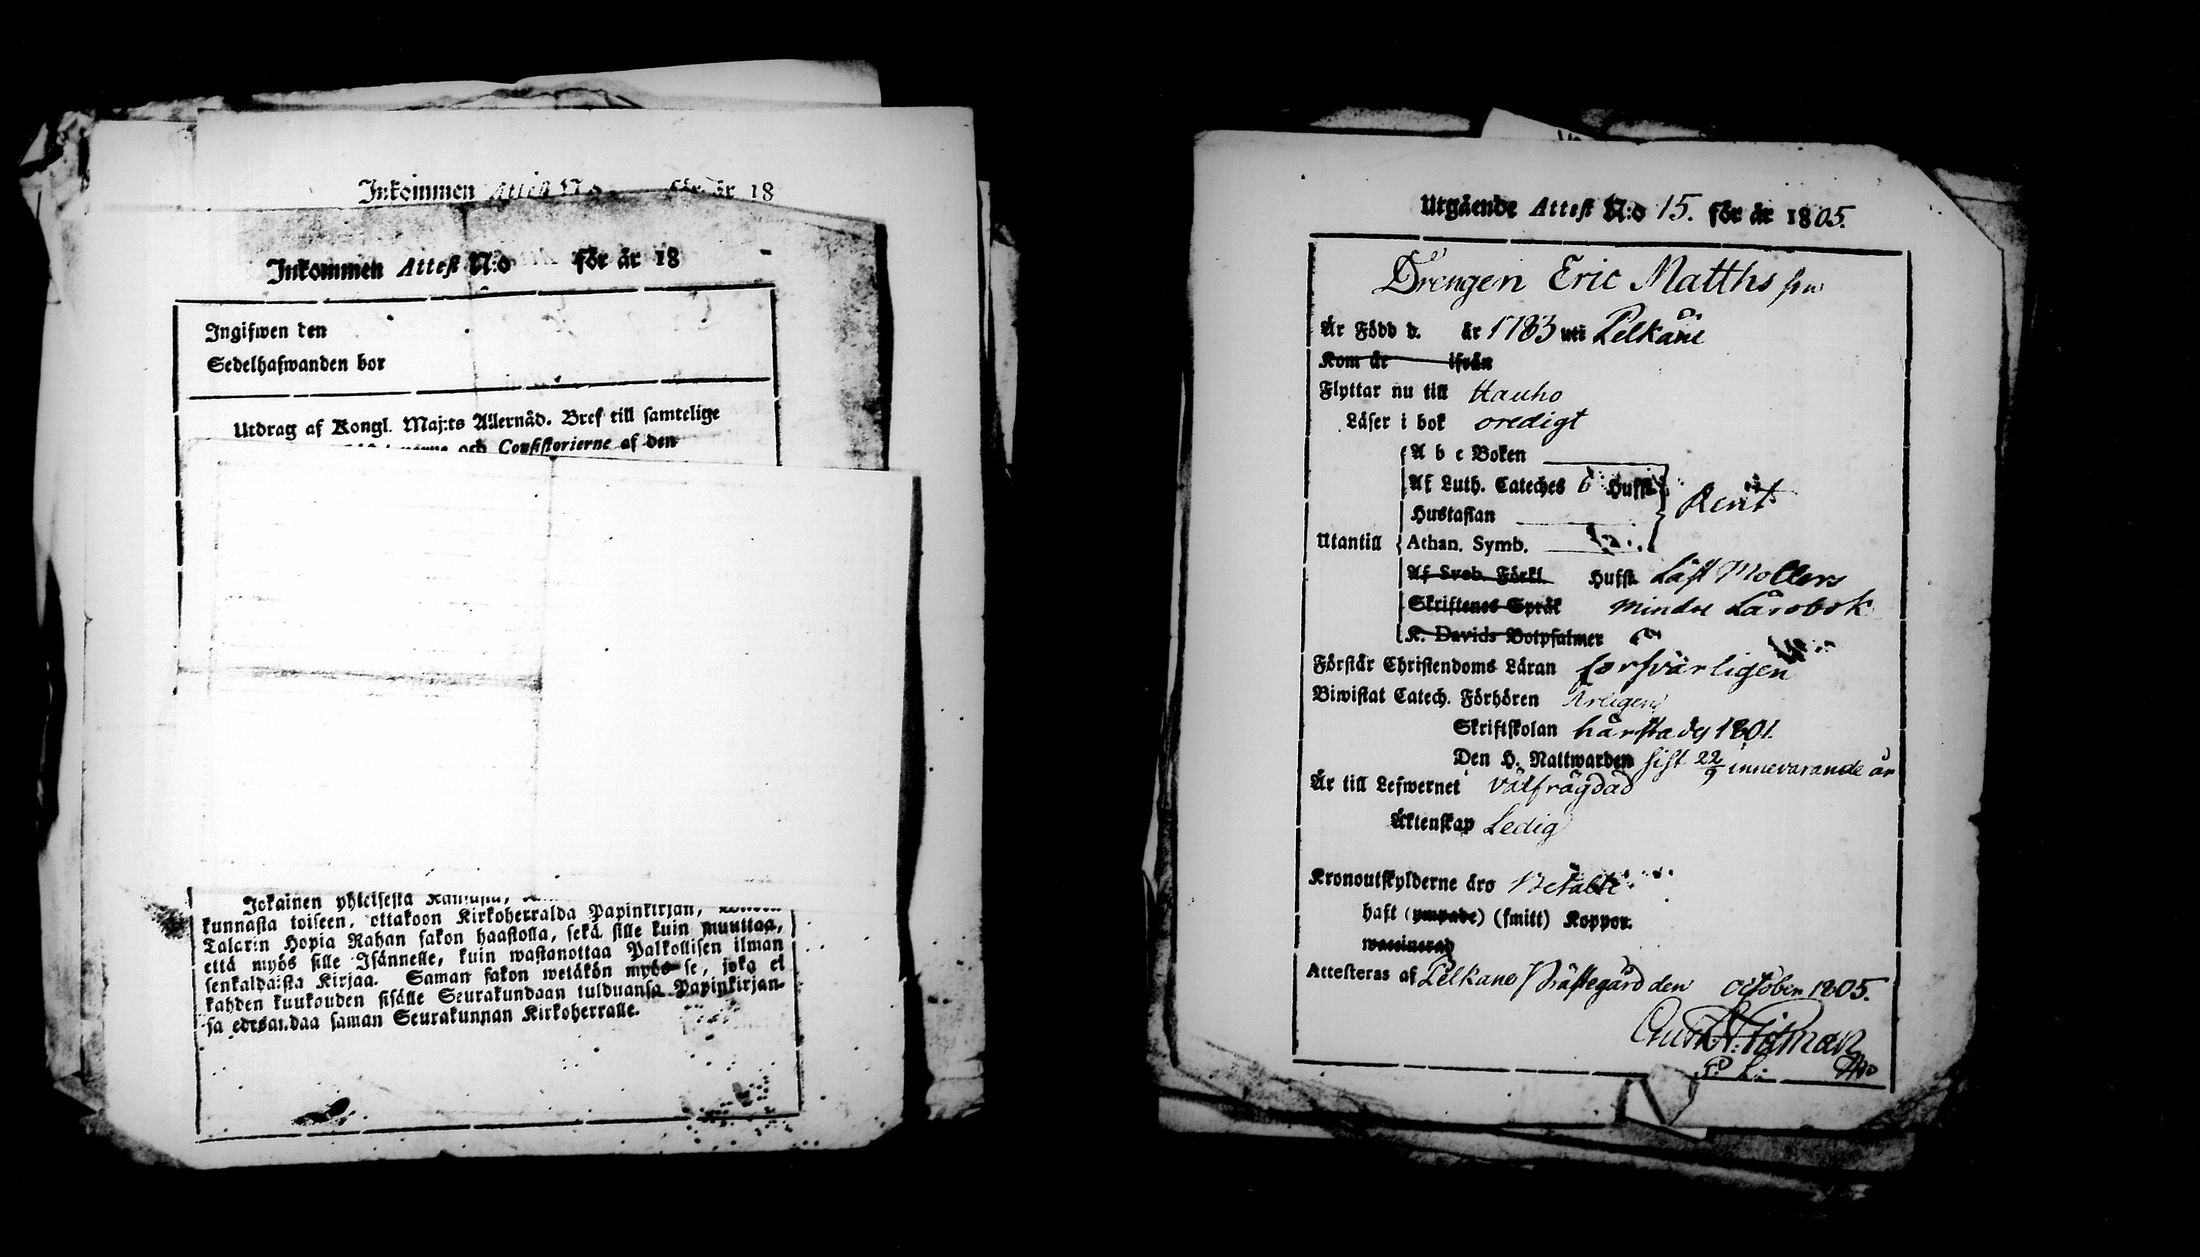 Inkommen Attest N:o för år 18
Inkommen Attest N:o för år 18
Ingifwen den
Sedelhafwanden bor
Utdrag af Kongl. Maj:ts Allernåd. Bref till samtelige
och Consistorierne af den
Jokainen yhteisesta
kunnasta toiseen, ottakoon Kirkoherralda Papinkirjan,
Talarin Hopia Rahan sakon haastolla, sekä sille kuin muuttaa,
että myös sille Isännelle, kuin wastanottaa Palkollisen ilman
senkaldaista Kirjaa. Saman sakon wetäkön myös se, joka ei
kahden kuukouden sisälle Seurakundaan tulduansa Papinkirjan-
sa edesandaa saman Seurakunnan Kirkoherralle.
Utgående Attest N:o 15. för år 1805.
Drengen Eric Matthsson
Är Född d. år 1783 uti Pelkäne
Kom år ifrån
Flyttar nu till Hauho
Läser i bok oredigt
A b c Boken
Af Luth. Cateches 6 Hufst.
Hustaflan
Rent
Utantill Athan. Symb.
Af Sveb. Förkl. Hufst. Läst Möllers
Skriftenes Språk mindre Lärobok
K. Davids Botpsalmer
Förstår Christendoms Läran försvarligen
Biwistat Catech. Förhören Årligen
Skriftskolan härstädes 1801.
Den H. Nattwarden sist 22/9 innevarande år
Är till Lefwernet välfrägdad
Äktenskap Ledig
Kronoutskylderne äro Betalte
haft (ympade) (smitt) Koppor.
waccinerad
Attesteras af Pelkäne Prästegård den october 1805.